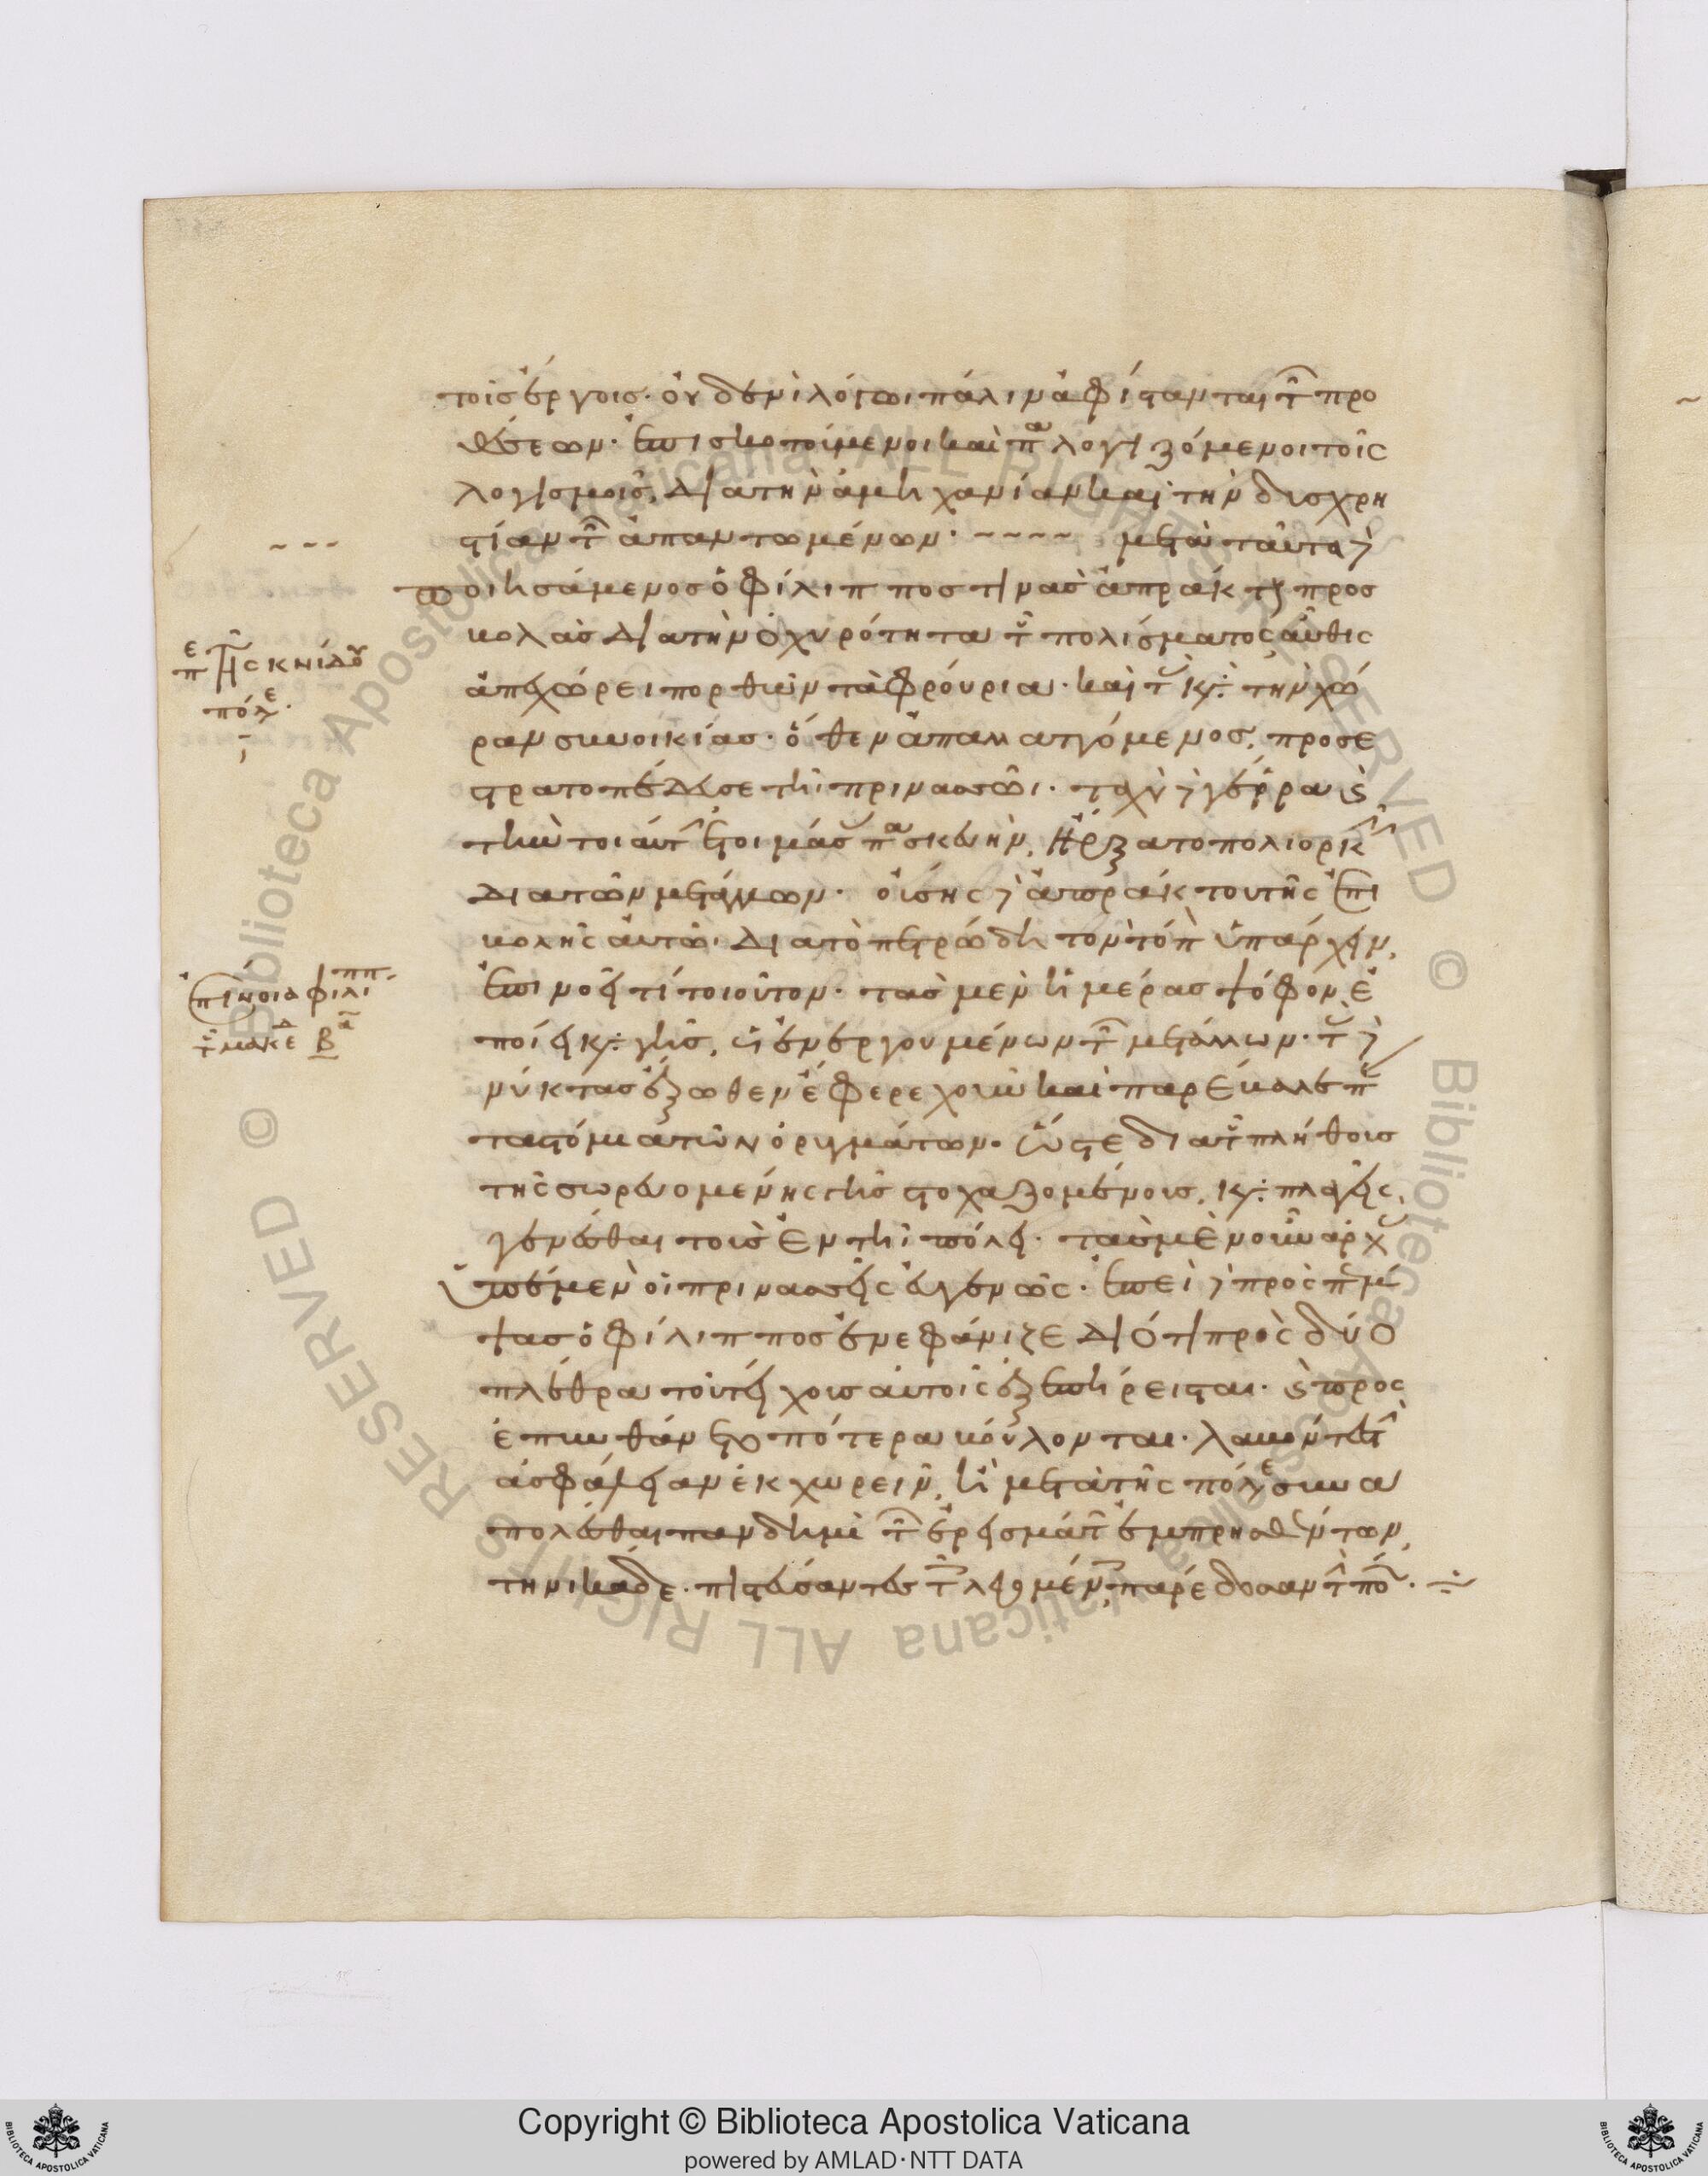 τοῖς ἔργοις. οὐδ' ἐν ὀλίγωι πάλιν ἀφίστανται τῶν προ
θέσεων. ἐπισκοπούμενοι καὶ παραλογιζόμενοι τοῖς
λογισμοῖς, διὰ τὴν ἀμηχανίαν καὶ τὴν δυσχρη
στίαν τῶν ἀπαντωμένων. ---- μετὰ ταῦτα δὲ
ποιησάμενος ὁ Φίλιππος τινὰς ἀπράκτους προσ
βολὰς διὰ τὴν ὀχυρότητα τοῦ πολίσματος, αὖθις
ἀπεχώρει πορθῶν τὰ φρούρια. καὶ τὰς κατὰ τὴν χώ
ραν συνοικίας. ὅθεν ἀπαλλαττόμενος, προσε
στρατοπέδευσε τῆι Πρινασσῶι. ταχὺ δὲ γέρρα καὶ
τὴν τοιαύτην ἑτοιμάσας παρασκευήν, ἤρξατο πολιορκεῖν
διὰ τῶν μετάλλων. οὔσης δὲ ἀπράκτου τῆς ἐπι
βολῆς αὐτῶι. διὰ τὸ πετρώδη τὸν τόπον ὑπάρχειν,
ἐπινοεῖ τί τοιοῦτον. τὰς μὲν ἡμέρας ψόφον ἐ
ποίει κατὰ γῆς, ὡς ἐνεργουμένων τῶν μετάλλων. τὰς δὲ
νύκτας ἔξωθεν ἔφερε χοῦν καὶ παρέβαλε παρὰ
τὰ στόμια τῶν ὀρυγμάτων. ὥστε διὰ τοῦ πλήθους
τῆς σωρευομένης γῆς στοχαζομένους, καταπλαγεῖς
γενέσθαι τοὺς ἐν τῆι πόλει. τὰς μὲν οὖν ἀρχὰς
ὑπέμενον οἱ Πρινασσεῖς εὐγενῶς. ἐπεὶ δὲ προσπέμ
ψας ὁ Φίλιππος ἐνεφάνιζε διότι πρὸς δύο
πλέθρα τοῦ τείχους αὐτοῖς ἐξεπήρεισται. καὶ προσ
επυνθάνετο πότερα βούλονται. λαβόντες τὴν
ἀσφάλειαν ἐκχωρεῖν, ἢ μετὰ τῆς πόλεως συνα
πολέσθαι πανδημεὶ τῶν ἐρεισμάτων ἐμπρησθέντων,
τηνικάδε. πιστεύσαντες τοῖς λεγομένοις, παρέδοσαν τὴν πόλιν.
ἐπὶ τῆς Κνίδου
πόλεως
ἐπίνοια Φιλίππου
τοῦ Μακεδ βα